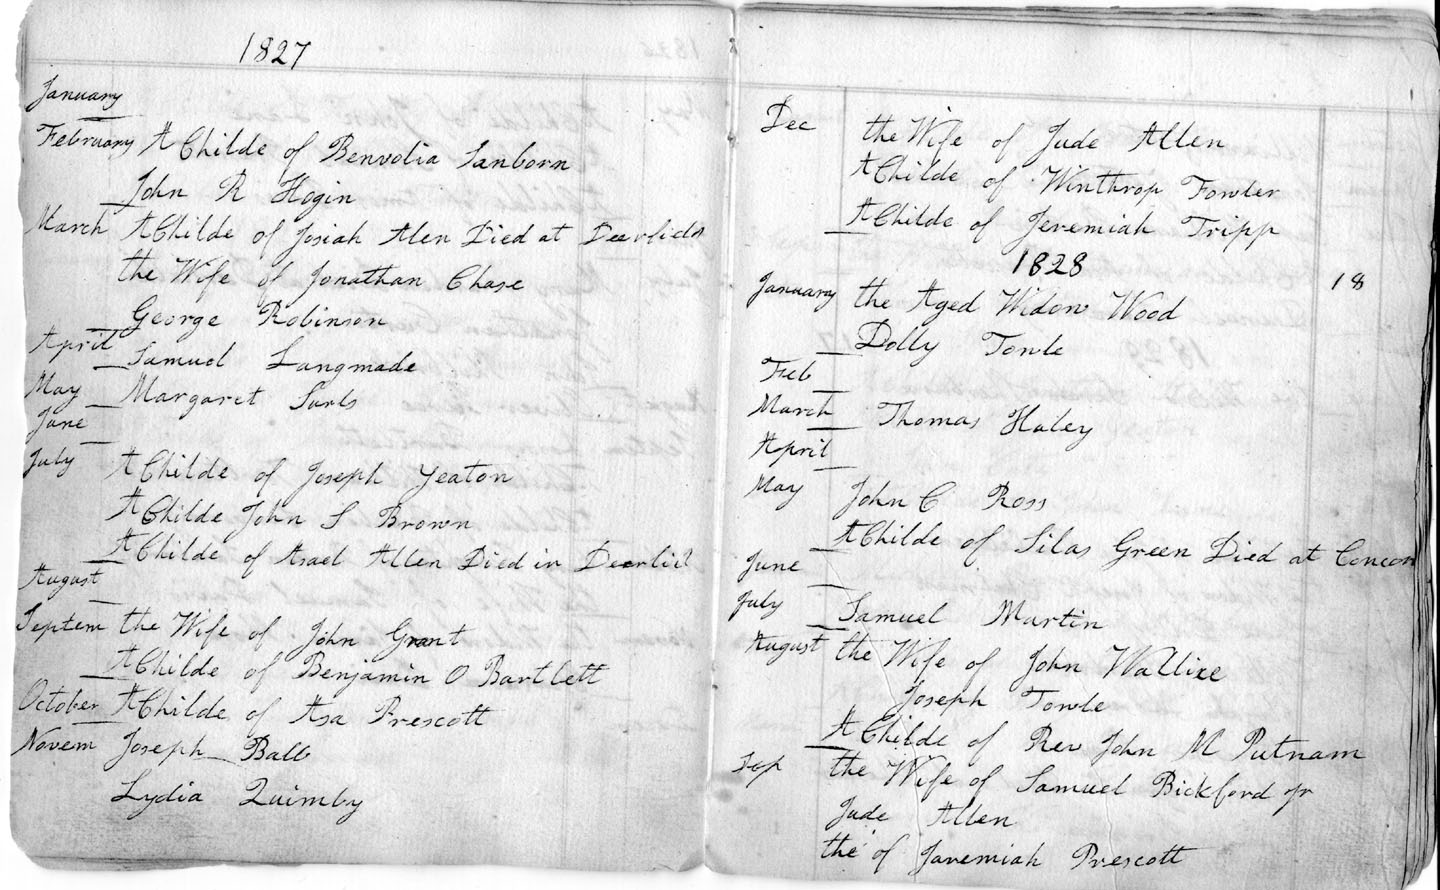 1827
January
February A Childe of Benvolia Sanborn
John R Hogin
March A Childe of Josiah Alen Died at Deerfield
the Wife of Jonathan Chase
George Robinson
April Samuel Langmade
May Margaret Sarls
June
July A Childe of Joseph Yeaton
A Childe John S Brown
A Childe of Asael Allen Died in Deerfiel
August
Septem the Wife of John Grant
A Childe of Benjamin O Bartlett
October A Childe of Asa Prescott
Novem Joseph Ball
Lydia Quimby
Dec the Wife of Jude Allen
A Childe of Winthrop Fowler
A Childe of Jeremiah Tripp
1828
18
January the Aged Widow Wood
Dolly Towle
Feb
March Thomas Haley
April
May John C Ross
A Childe of Silas Green Died at Concor
June
July Samuel Martin
August the Wife of John Wallice
Joseph Towle
A Childe of Rev John M Putnam
Sep the Wife of Samuel Bickford Jr
Jude Allen
the of Jaremiah Prescott